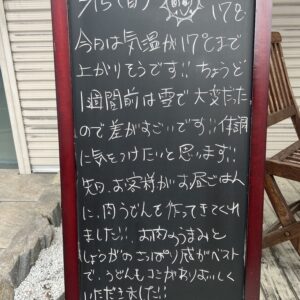 17℃
今日は気温が17℃まで
上がりそうです!! ちょうど
1週間前は雪で大変だった
ので差がすごいです!! 体調
に気をつけたいと思います!!
先日、お客様がお昼ごはん
に、肉うどんを作ってきてくれ
ました!! お肉のうまみと
しょうがのさっぱり感がベスト
で、うどんもコシがありおいしく
いただきました!!